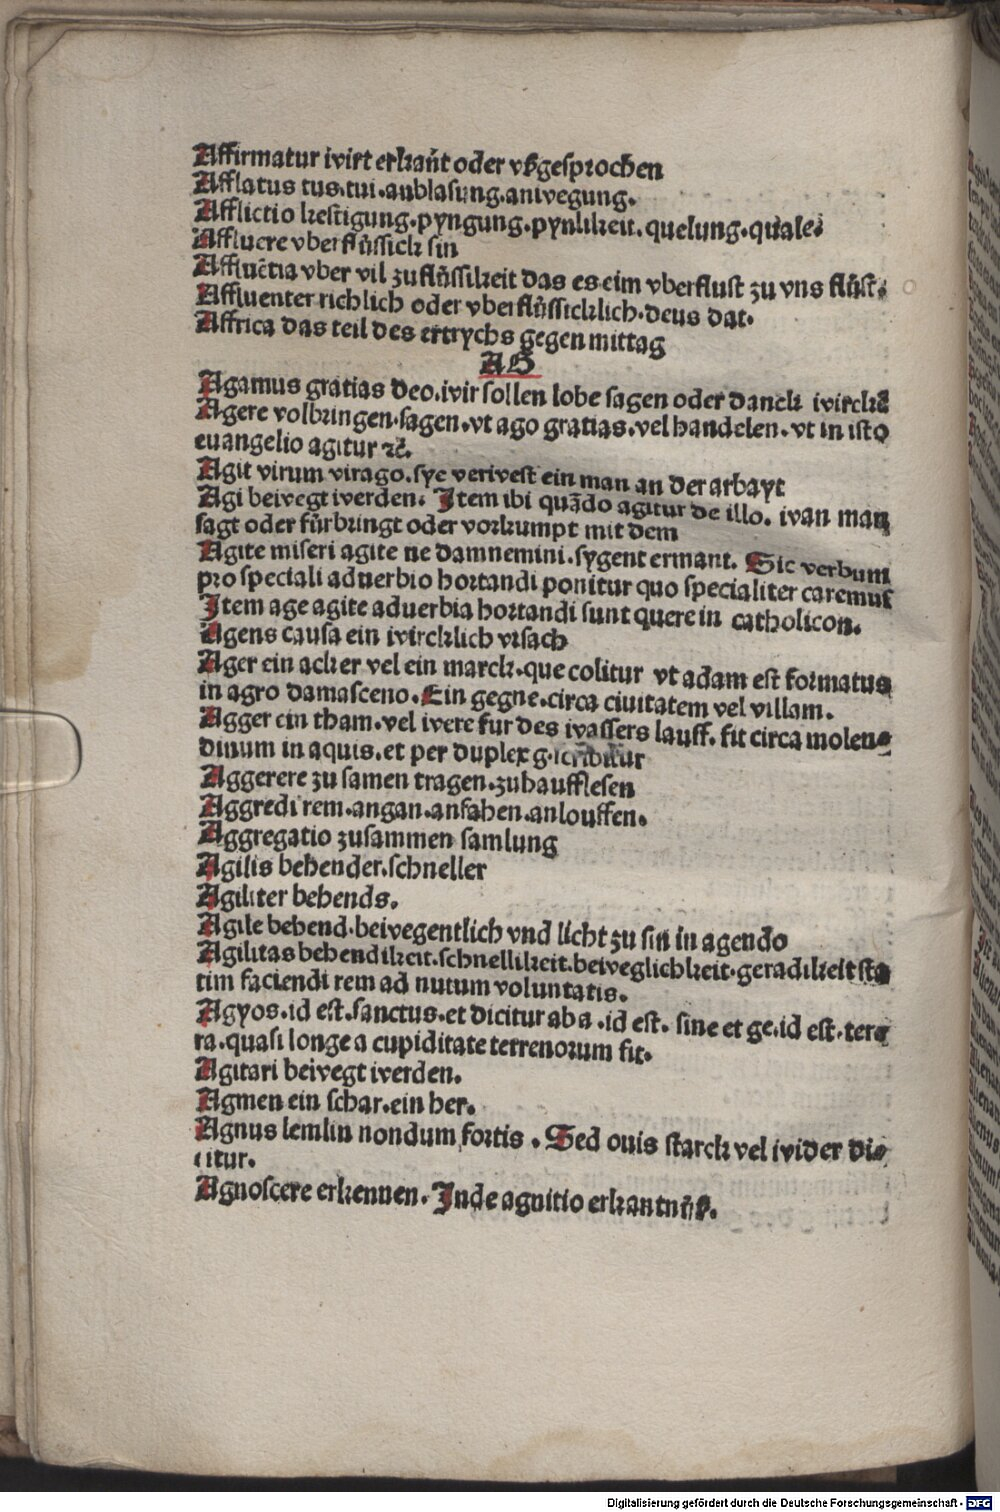 Affirmatur wirt erkañt oder vßgesprochen
Afflatus tus.tui.anblasung.anwegung.
Afflictio kestigung.pyngung.pynlikeit.quelung.quale.
Affluere vberflüssick sin
Affluẽtia vber vil zuflüssikeit das es eim vberflust zu vns flüst.
Affluenter richlich oder vberflüssicklich.deus dat.
Affrica das teil des ertrychs gegen mittag
AG
Agamus gratias deo.wir sollen lobe sagen oder danck wirckẽ
Agere volbringen.sagen.vt ago gratias.vel handelen.vt in isto
euangelio agitur ꝛc̃.
Agit virum virago.sye verwest ein man an der arbayt
Agi bewegt werden. Item ibi quãdo agitur de illo. wan man
sagt oder fürbringt oder vorkumpt mit dem
Agite miseri agite ne damnemini.sygent ermant. Sic verbum
pro speciali aduerbio hortandi ponitur quo specialiter caremus
Item age agite aduerbia hortandi sunt quere in catholicon.
Agens causa ein wircklich vrsach
Ager ein acker vel ein marck.que colitur vt adam est formatus
in agro damasceno. Ein gegne.circa ciuitatem vel villam.
Agger ein tham.vel were fur des wassers lauff. fit circa molen⸗
dinum in aquis.et per duplex g.scribitur
Aggerere zu samen tragen.zuhaufflesen
Aggredi rem.angan.anfahen.anlouffen.
Aggregatio zusammen samlung
Agilis behender.schneller
Agiliter behends.
Agile behend.bewegentlich vnd licht zu sin in agendo
Agilitas behendikeit.schnellikeit.beweglichkeit.geradikeit sta
tim faciendi rem ad nutum voluntatis.
Agyos.id est.sanctus.et dicitur aba .id est. sine et ge.id est.ter⸗
ra.quasi longe a cupiditate terrenorum fit.
Agitari bewegt werden.
Agmen ein schar.ein her.
Agnus lemlin nondum fortis . Sed ouis starck vel wider di⸗
citur.
Agnoscere erkennen. Inde agnitio erkantnüß.
Digitalisierung gefördert durch die Deutsche Forschungsgemeinschaft - DFG